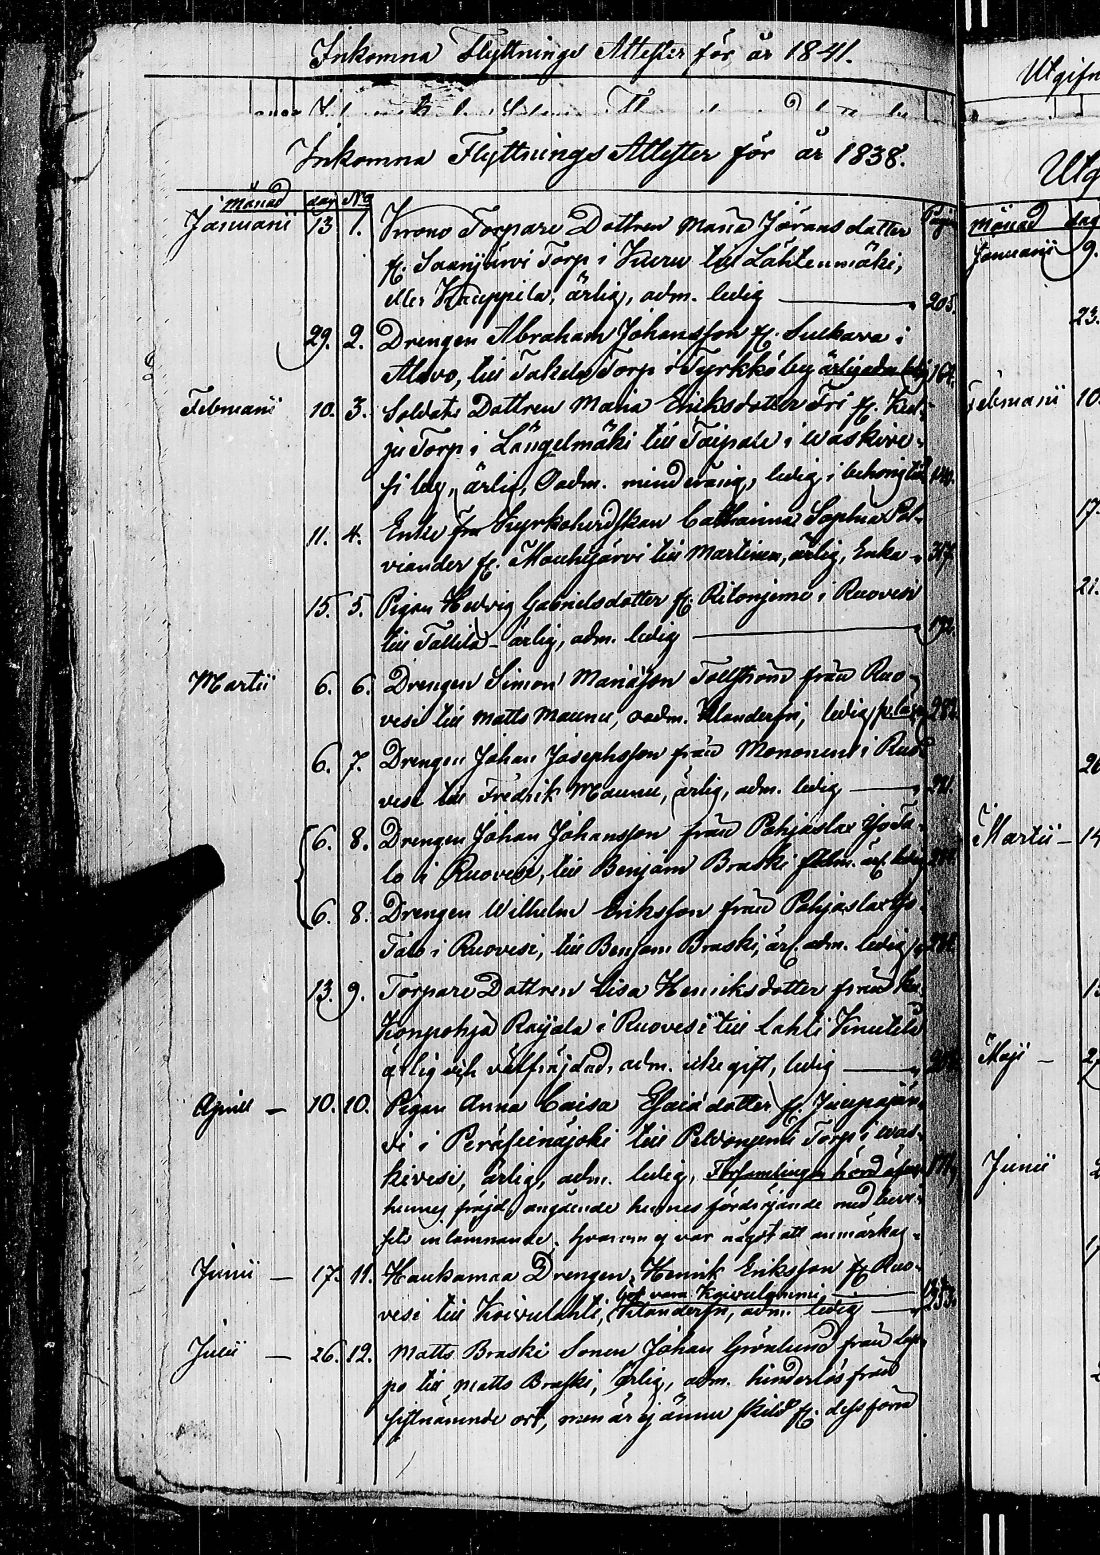 Inkomna Flyttnings Attester för år 1841.
Inkomna Flyttnings Attester för år 1838.
Månad dag No Pagin
Januarii 13 1. Krono Torpare Dottren Maria Jöransdotter
fr. Saarijärvi Torp i Kuru till Lähtenmäki,
eller Knuppila, ärlig, adm. ledig 205.
29. 2. Drengen Abraham Johansson fr. Sulkava i
Alavo, till Jakela Torp i Tyrkkö by ärlig adm. ledig 164.
Februarii 10. 3. Soldats Dottren Maria Eriksdotter Fri fr.
ju Torp i Längelmäki till Taipale i Waskive-
si by, ärlig, Oadm. minderårig, ledig, i behörig tid
11. 4. Enke Kyrkoherdskan Catharina Sophia Pol-
viander fr. Mouhijärvi till Martinen, ärlig, Enka 317.
15. 5. Pigan Hedvig Gabrielsdotter fr. Ritoniemi i Ruovesi
till Tallila ärlig, adm. ledig 192.
Martii 6. 6. Drengen Simon Mariæson från Ruo-
vesi till Matts Maunu, oadm. Klanderfri, ledig
6. 7. Drengen Johan Josephsson från Mononen i Ruo
vesi till Fredrik Maunu, ärlig, adm. ledig 281.
6. 8. Drengen Johan Johansson från Pohjaslax Yso Ta-
lo i Ruovesi, till Benjam Braski adm. ärl. ledig
6. 8. Drengen Wilhelm Eriksson från Pohjaslax Yso
Talo i Ruovesi, till Benjam Braski, ärl. adm. ledig
13. 9. Torpare Dottren Lisa Henriksdotter från
Konpohja Rajala i Ruovesi till Lahli Knutila
ärlig och välfräjdad, adm. icke gift, ledig
Aprill 10. 10. Pigan Anna Caisa Esaiædotter fr.
vi i Peräseinäjoki till Peltoniemi Torp i Was-
kivesi, ärlig, adm. ledig, Församlingen hörd öfver
hennes fräjd, angående hennes med
inlemnande, hvarom ej var något att anmärka,
Junii 17. 11. Haukamaa Drengen Henrik Eriksson fr. Ruo-
bör vara Koivulammi
vesi till Koivulahti, Klanderfri, adm. ledig 253.
Julii 26. 12. Matts Braski Sonen Johan Grönlund från
po till Matts Braski, ärlig, adm. hinderlös från
sistnämnde ort, men är ej ännu skild fr. dess förra
Utgifn
Utg
månad dag
Januarii 9.
23.
Februarii 10
17.
21.
Martii 14
Maji
Junii